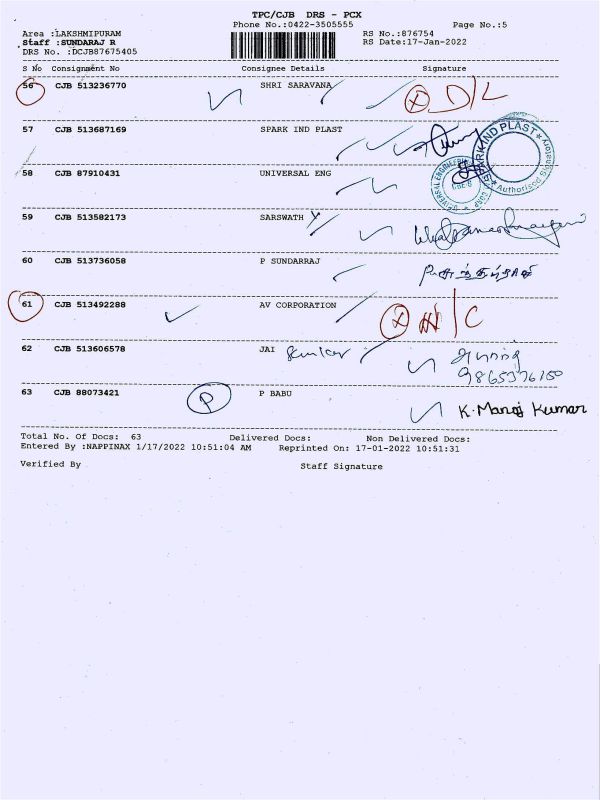 TPC/CJB DRS - PCX
Phone No.:0422-3505555 Page No.:5
Area :LAKSHMIPURAM RS No.:876754
Staff :SUNDARAJ R RS Date:17-Jan-2022
DRS No. :DCJB87675405
S No Consignment No Consignee Details Signature
56 CJB 513236770 SHRI SARAVANA X D/L
57 CJB 513687169 SPARK IND PLAST
SPARK IND PLAST
Authorised Signatory
58 CJB 87910431 UNIVERSAL ENG
UNIVERSAL ENGINEERING
59 CJB 513582173 SARSWATH
60 CJB 513736058 P SUNDARRAJ
61 CJB 513492288 AV CORPORATION X H/C
62 CJB 513606578 JAI
63 CJB 88073421 P P BABU K. Manoj Kumar
Total No. Of Docs: 63 Delivered Docs: Non Delivered Docs:
Entered By :NAPPINAX 1/17/2022 10:51:04 AM Reprinted On: 17-01-2022 10:51:31
Verified By Staff Signature